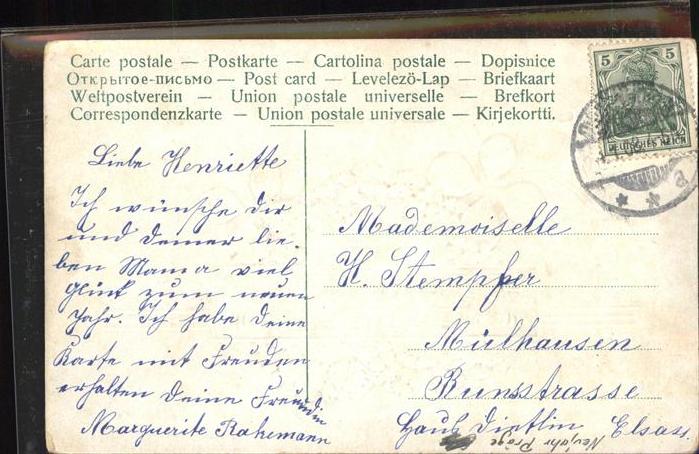 Carte postale — Postkarte — Cartolina postale — Dopisnice
Открытое-письмо — Post card — Levelező-Lap — Briefkaart
Weltpostverein — Union postale universelle — Brefkort
Correspondenzkarte — Union postale universale — Kirjekortti.
5 5
DEUTSCHES REICH
Liebe Henriette
Ich wünsche dir
und deiner lie-
ben Mama viel
Glück zum neuen
Jahr. Ich habe deine
Karte mit Freuden
erhalten Deine Freundin
Marguerite
Mademoiselle
H. Stempfer
Mülhausen
Runsstrasse
Haus Dietlin Elsass
Neujahr Präge